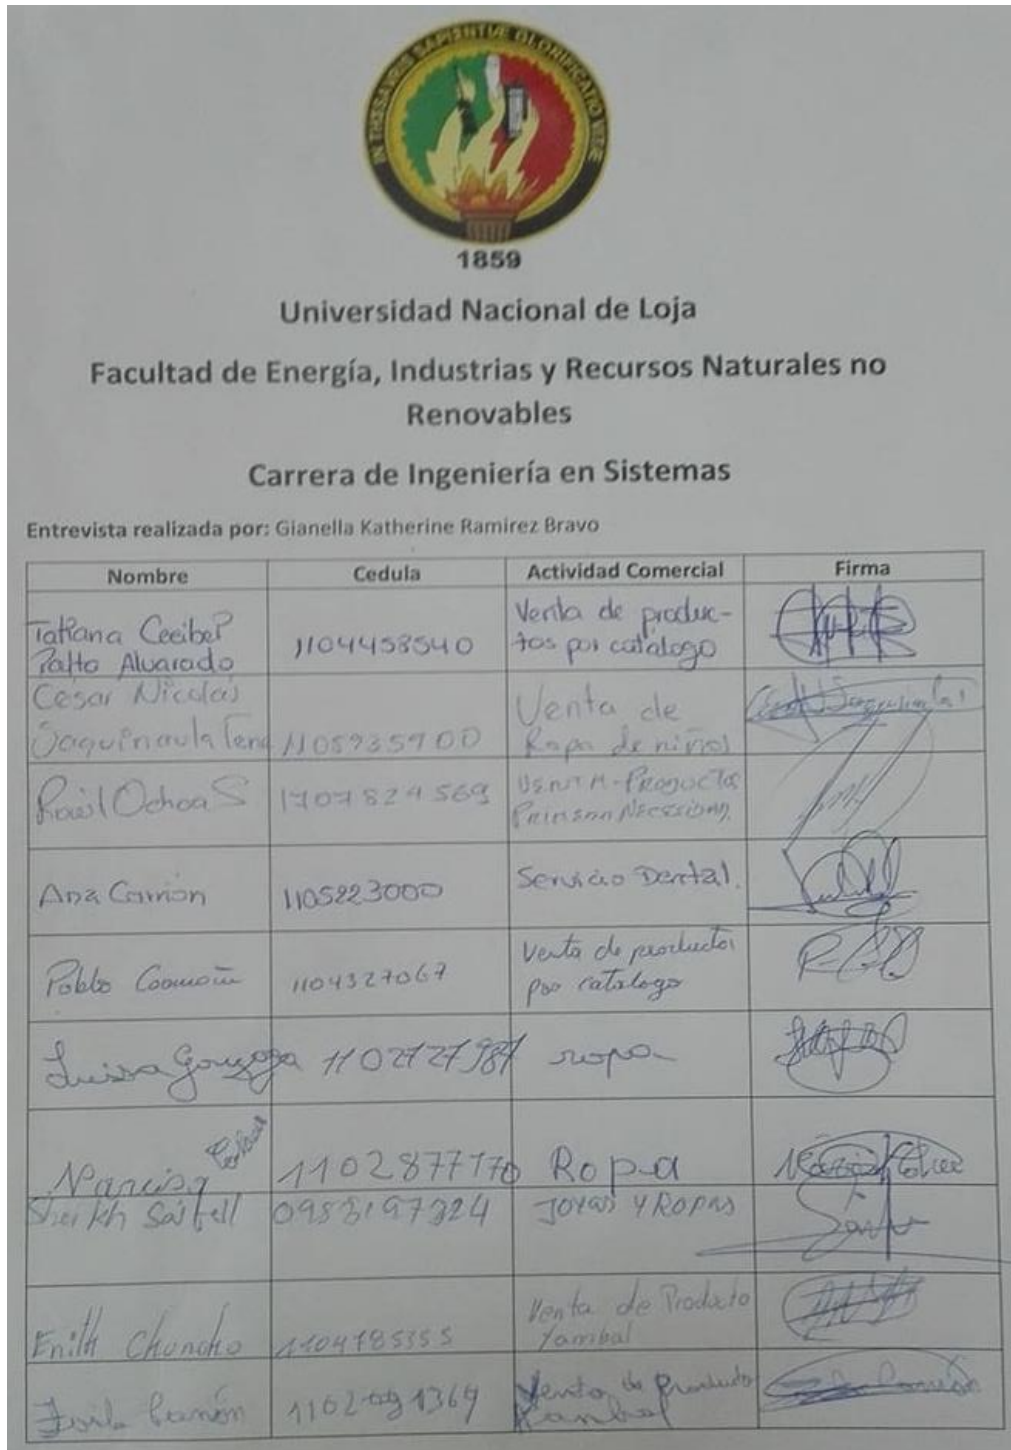 IN THESAURIS SAPIENTIAE GLORIFICATIO VITAE
1859
Universidad Nacional de Loja
Facultad de Energía, Industrias y Recursos Naturales no
Renovables
Carrera de Ingeniería en Sistemas
Entrevista realizada por: Gianella Katherine Ramirez Bravo
Nombre Cedula Actividad Comercial Firma
Tatiana Ceeibel
Patto Alvarado
1104458540
Venta de produc-
tos por catálogo
Cesar Nicolás
1105935900
Venta de
Ropa de niños
Raúl Ochoa S
1707824569
Venta-Productos
Ana Carrión
1105223000
Servicio Dental.
Pablo
1104327067
Venta de productos
por catalogo
Luisa Gonzaga
ropa
Narcisa
1102877170
Ropa
Sheikh
0953197324
Joyas y Ropas
Enith Chuncho
1104785355
Venta de Producto
Yambal
Carrión
Venta de Producto
Yambal